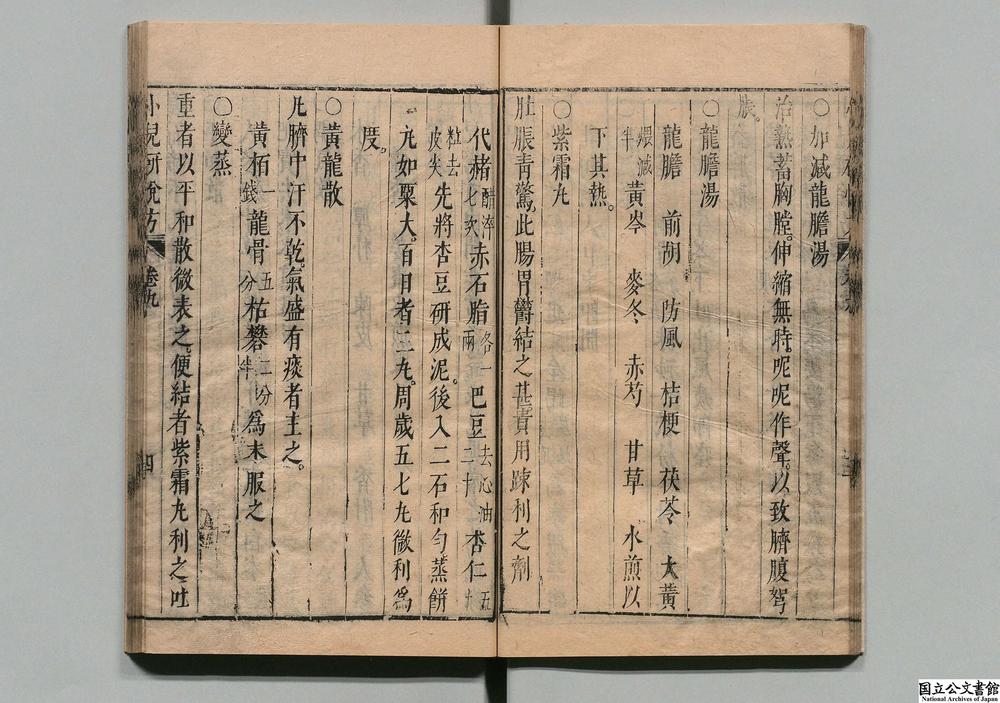 ○加減龍膽湯
治熱蓄胸膛。伸縮無時。呢呢作聲。以致臍腹脬
脹。
○龍膽湯
龍膽 前胡 防風 桔梗 茯苓 大黄
煨減半 黄岑 麥冬 赤芍 甘草 水煎以
下其熱。
○紫霜丸
肚脹青驚。此腸胃欝結之甚。貴用踈利之劑
代赭醋淬七次赤石脂各一兩巴豆去心油二十杏仁五十
粒去皮尖先將杏豆研成泥。後入二石和勻蒸餅
丸如粟大。百日者三丸。周歲五七丸微利爲
度。
○黄龍散
凡臍中汗不乾。氣盛有痰者主之。
黄栢一錢龍骨五分枯礬二分半爲末服之
○變蒸
重者以平和散微表之。便結者紫霜丸利之吐
小兒研悅方
卷九
四
国立公文書館
National Archives of Japan